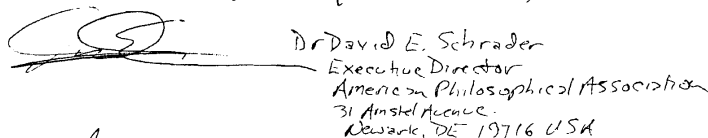 Dr David E. Schrader
Executive Director
American Philosophical Association
31 Amstel Avenue.
Newark, DE 19716 USA